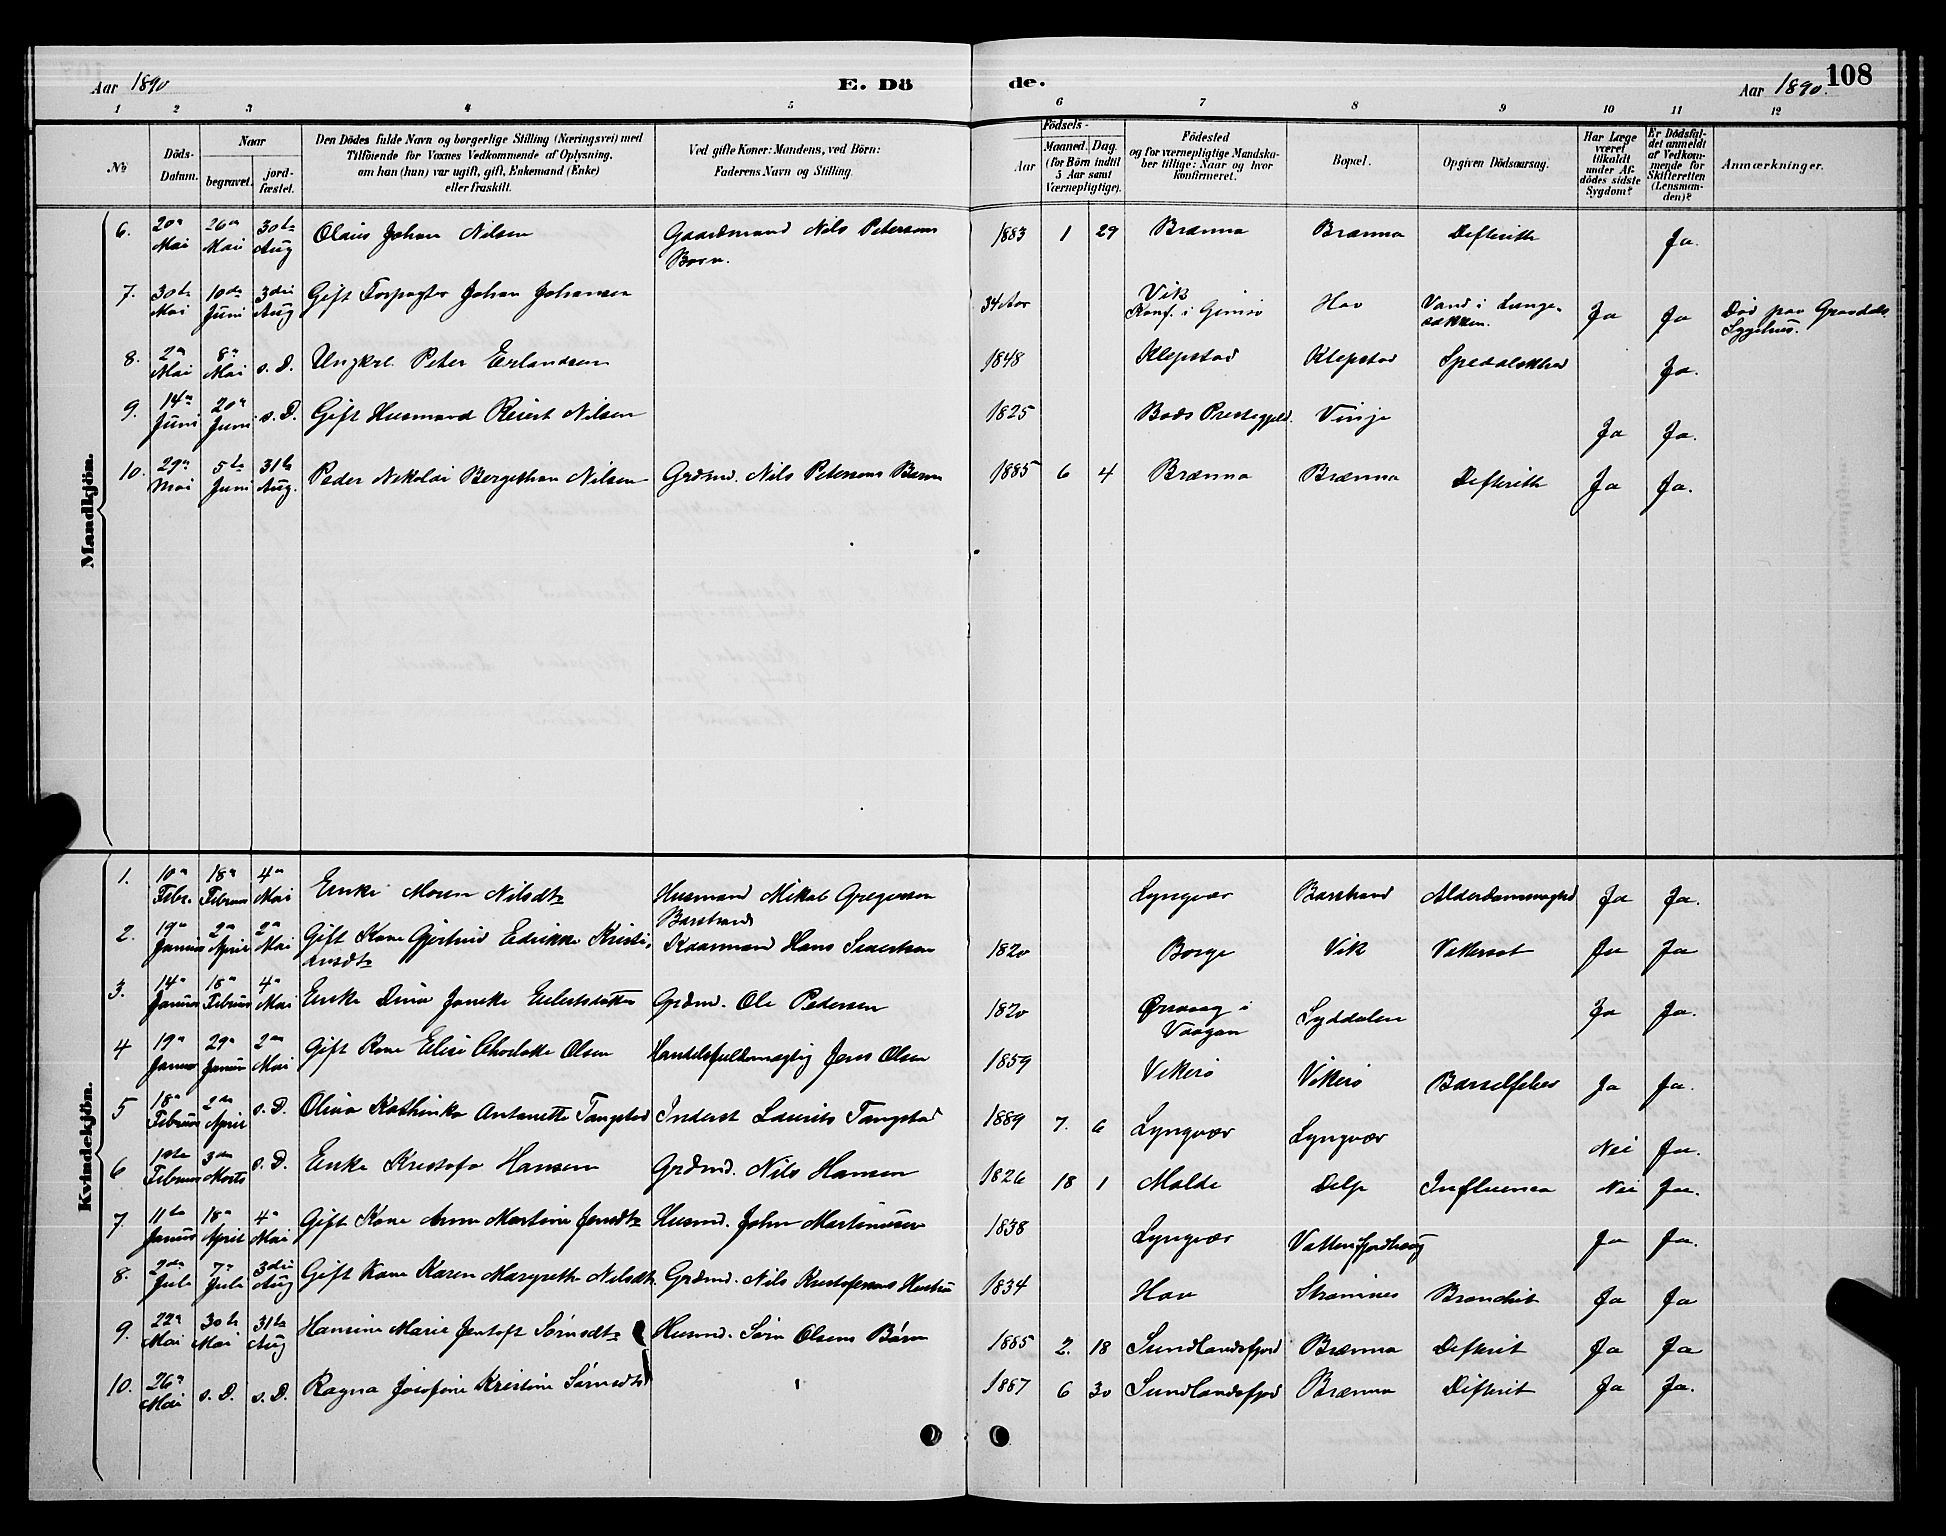 Aar 1890
E. Dö
de.
Aar 1890.
108
1 2 3 4 5 6 7 8 9 10 11 12
№
Döds-
Datum.
Naar
begravet.
jord-
fæstet.
Den Dödes fulde Navn og borgerlige Stilling (Næringsvei) med
Tilföiende for Voxnes Vedkommende af Oplysning,
om han (hun) var ugift, gift, Enkemand (Enke)
eller fraskilt.
Ved gifte Koner: Mandens, ved Börn:
Faderens Navn og Stilling.
Födsels-
Aar
Maaned. Dag.
(for Börn indtil
5 Aar samt
Værnepligtige).
Födested
og for værnepligtige Mandska-
ber tillige: Naar og hvor
konfirmeret.
Bopæl.
Opgiven Dödsaarsag.
Har Læge
været
tilkaldt
under Af-
dödes sidste
Sygdom?
Er Dödsfal-
det anmeldt
af Vedkom-
mende for
Skifteretten
(Lensman-
den)?
Anmærkninger.
Mandkjön.
6. 20n Mai 26n Mai 30te Aug Olaus Johan Nilsen Gaardmand Nils Petersens Barn. 1883 1 29 Brænna Brænna Difterith Ja.
7. 30te Mai 10de Juni 3die Aug Gift Forpagter Johan Johansen 34 Aar Vik Konf. i Gimsö Hov Vand i Lunge-sækken. Ja Ja Död paa Gravdals Sygehus.
8. 2n Mai 8n Mai s. D. Ungkrl. Peter Erlandsen 1848 Klepstad Klepstad Spedalskhed Ja.
9. 14n Juni 20n Juni s. D. Gift Husmand Reiert Nilsen 1825 Bodö Prestegjeld. Vinje Ja Ja.
10. 29n Mai 5te Juni 31te Aug. Peder Nikolai Bergethon Nilsen Grdmd. Nils Petersens Barn 1885 6 4 Brænna Brænna Difterith Ja Ja.
Kvindekjön.
1. 10n Febr. 18n Februar 4n Mai Enke Maren Nilsdtr Husmand Mikal Gregersen Barstrand Lyngvær Barstrand Alderdomssvaghed Ja Ja.
2. 19n Januar 2n April 2n Mai Gift Kone Gjertrud Edrikke Kristi-ansdtr Kaarmand Hans Sivertsen 1820 Borge Vik Vattersot Ja Ja
3. 14n Januar 18n Februar 4n Mai Enke Dina Janike Eilertsdatter Grdmd. Ole Pedersen 1820 Ørsvaag i Vaagan Syddalen Ja Ja.
4 19n Januar 29n Januar 2den Mai Gift Kone Elise Charlotte Olsen Handelsfuldmægtig Jens Olsen 1859 Vikerö Vikerö Barselfeber Ja Ja.
5 18n Februar 2den April s. D. Olina Kathinka Antonette Tangstad Inderst Laurits Tangstad 1889 7. 6 Lyngvær Lyngvær Nei Ja.
6 1ste Februar 3den Marts s. D. Enke Kristofa Hansen Grdmd. Nils Hansen 1826 18 1 Molde Delp Influensa Nei Ja.
7. 11te Januar 18n April 4n Mai Gift Kone Anne Martine Jensdtr Husmd. John Martinusen 1838 Lyngvær Vatterfjordhaug Ja Ja.
8. 2den Juli 7n Juli 3die Aug Gift Kone Karen Margrethe Nilsdtr Grdmd. Nils Kristofersens Hustru 1834 Hov Strømnes Brandsit Ja Ja
9. 22n Mai 30te Mai 31te Aug Hansine Marie Jentoft Sørensdtr Husmd. Sørn Olsens Børn 1885 2. 18 Sundlandsfjord Brænna Difterit Ja Ja
10. 26n Mai s. D. s. D. Ragna Josefine Kristine Sørensdtr 1887 6 30 Sundlandsfjord Brænna Difterit Ja Ja.